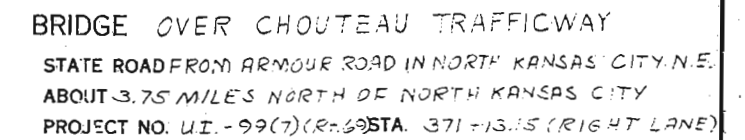 BRIDGE OVER CHOUTEAU TRAFFICWAY
STATE ROAD FROM ARMOUR ROAD IN NORTH KANSAS CITY. N.E.
ABOUT 3.75 MILES NORTH OF NORTH KANSAS CITY
PROJECT NO. U.I.-99(7)(R-69) STA. 371+13.15 (RIGHT LANE)